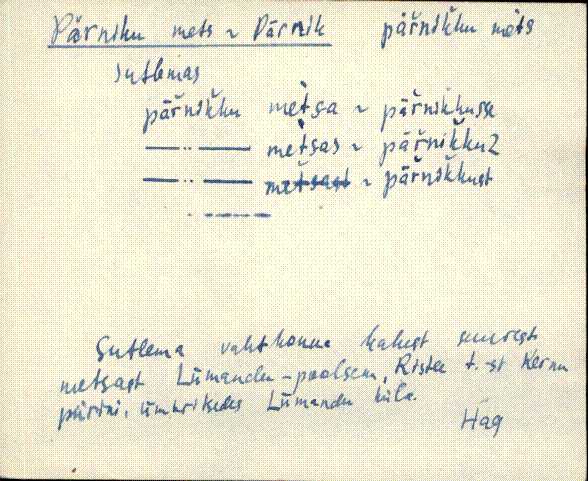 Pärniku mets ~ Pärnik pär̆nik̆ku mèts
Sutlemas
pär̆nik̆ku mètsa ~ pär̆nik̆kusse
—..— mètsas ~ pär̆nik̆ku2
—..— metsast ~ pär̆nik̆kust
Sutlema vahtkonna kahest suurest
metsast Lümandu-poolsem, Ristee t.-st Kernu
piirini, ümbritsedes Lümandu küla.
Hag